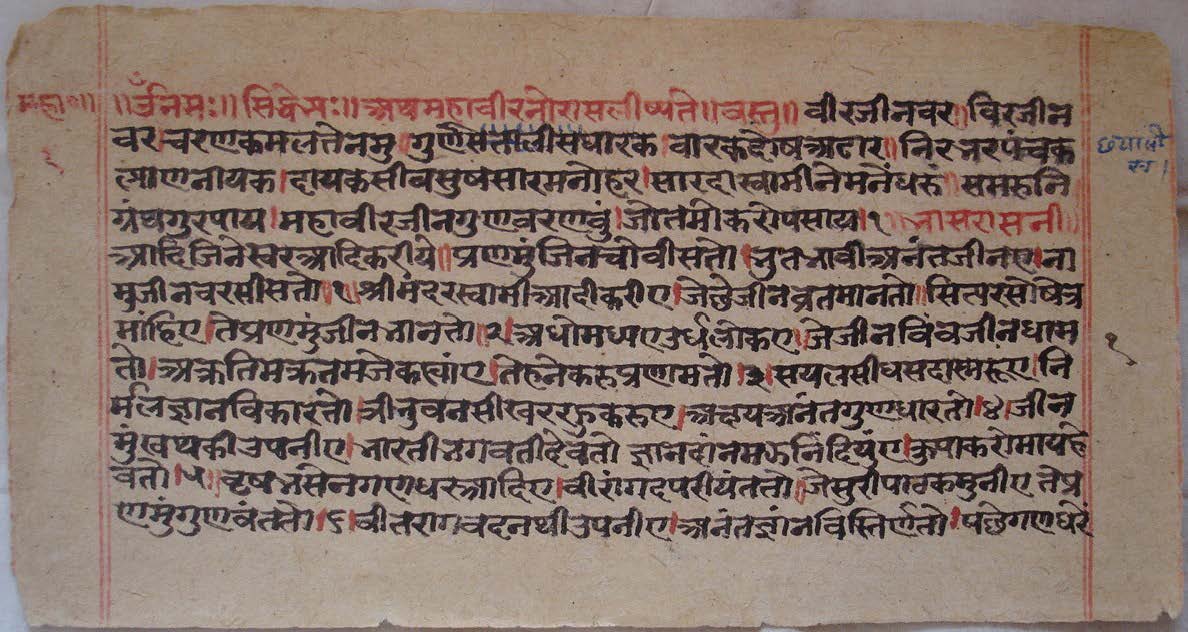 ॥ ॐ नमः ॥ सिद्धेभ्यः ॥ अथ महावीरनो रास लीष्यते ॥ वस्तु ॥ वीर जीनवर ॥ विर जीन
वर । चरण कमल तेने नमु । गुणे सतालीस धारक । वारक दोष अढार ॥ निरभर पंचक
ल्याण नायक । दायक सीव सुष सार मनोहर । सारदा स्वामीने मने धरुं ॥ समरु नि
ग्रंथ गुरपाय । महावीर जीन गुण वरणवुं । जो तमो करो पसाय । १ ॥ भास रासनी ॥
आदि जिनेस्वर आदि करीये ॥ प्रणमुं जिन चोवीसतो । भुत भावी अनंत जीन ए । ना
मु जीनवर सीसतो । १ । श्रीमंदर स्वामी आदी करी ए । जे छे जीन व्रतमानतो ॥ सितर सो षेत्र
मांहि ए । ते प्रणमुं जीन भानतो । २ । अधो मध्य ए उर्ध लोक ए । जे जीनबिंब जीनधाम
तो । अक्रतिम क्रतम जे कह्यां ए । तेहने करु प्रणामतो । ३ । सयल सीध सदा स्मरू ए । नि
र्मल ज्ञान विकारतो । त्रीभुवन सीखर
अनंत गुण धारतो । ४ । जीन
मुख थकी उपनी ए । भारती भगवती देवतो ज्ञान दांन मझने दियुं ए । कृपा करो माय हे
वतो । ५ । वृषभसेन गणधर आदि ए । वीरांगद परीयंततो । जे सुरी पाठक मुनी ए ते प्र
णमुं गुणवंततो । ६ । वीतराग वदन थी उपनी ए । अनंत ज्ञांन विस्तिर्णतो । पछे गणधरे
महा० ॥
१
१